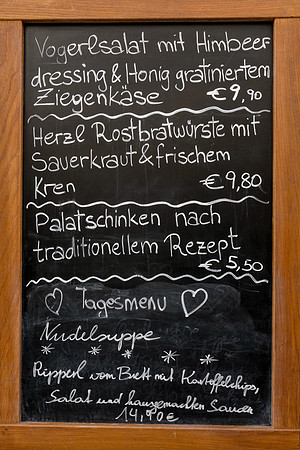 Vogerlsalat mit Himbeer
dressing & Honig gratiniertem
Ziegenkäse €9,90
Herzl Rostbratwürste mit
Sauerkraut & frischem
Kren €9,80
Palatschinken nach
traditionellem Rezept
€5,50
Tagesmenu
Nudelsuppe
Ripperl vom Brett mit Kartoffelchips,
Salat und hausgemachten Saucen
14,90€